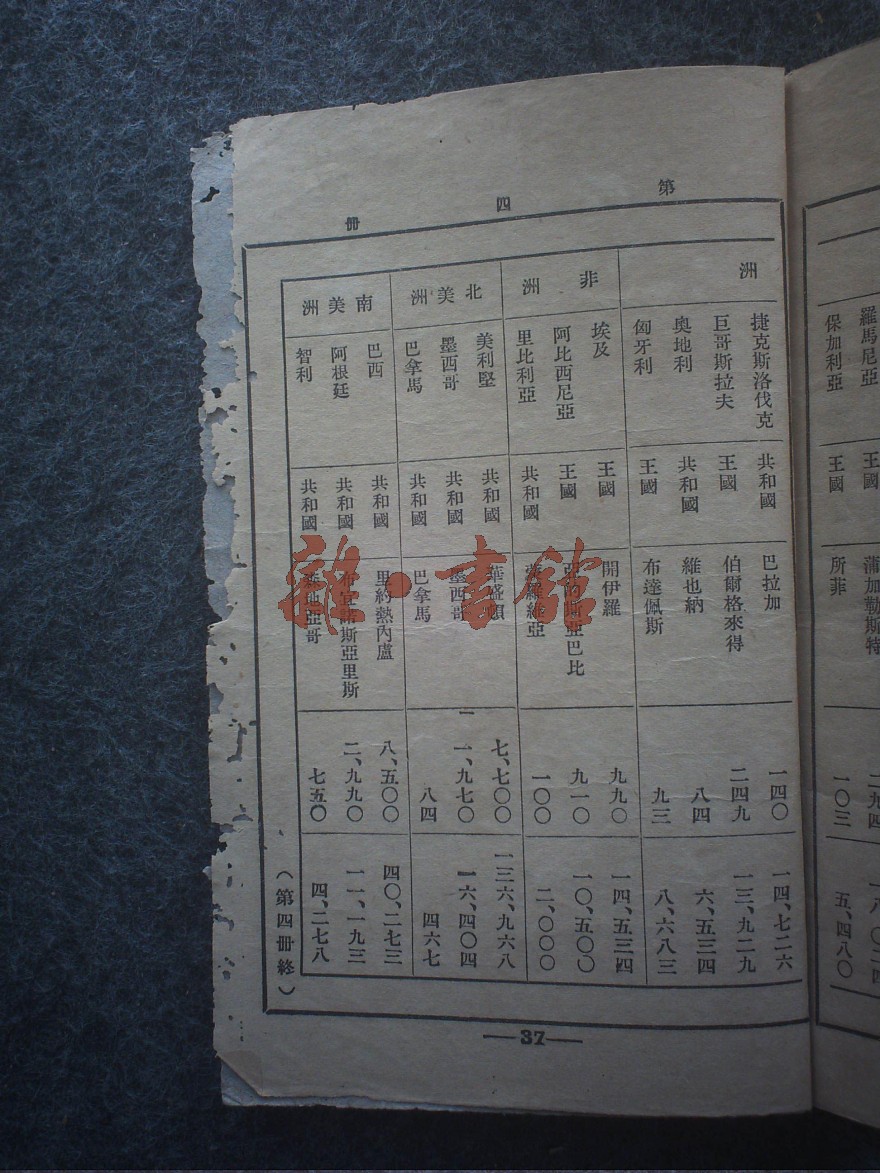 羅馬尼亞 王國 蒲加勒斯特 二九四
保加利亞 王國 所菲 一〇三 五、四八〇
第四冊
洲
捷克斯洛伐克 共和國 巴拉加 一四〇 一四、七二六
巨哥斯拉夫 王國 伯爾格來得 二四九 一三、九二九
奧地利 共和國 維也納 八四 六、五三四
匈牙利 王國 布達佩斯 九三 八、六八三
非洲
埃及 王國 開伊羅 九九〇 一四、五三四
阿比西尼亞 王國 亞的斯亞巴比 九一〇 一〇、五〇〇
里比利亞 共和國 蒙羅維亞 一〇〇 二、〇〇〇
北美洲
美利堅 共和國 華盛頓 七、七〇〇 一三六、九六八
墨西哥 共和國 墨西哥 一一、九七〇 一六、四〇四
巴拿馬 共和國 巴拿馬 八四 四六七
南美洲
巴西 共和國 里約熱內盧 八、五〇〇 四〇、二七三
阿根廷 共和國 布宜諾斯亞里斯 二、九九〇 一一、一九三
智利 共和國 森地亞哥 七五〇 四、二七八
(第四冊終)
—37—
雜·書館